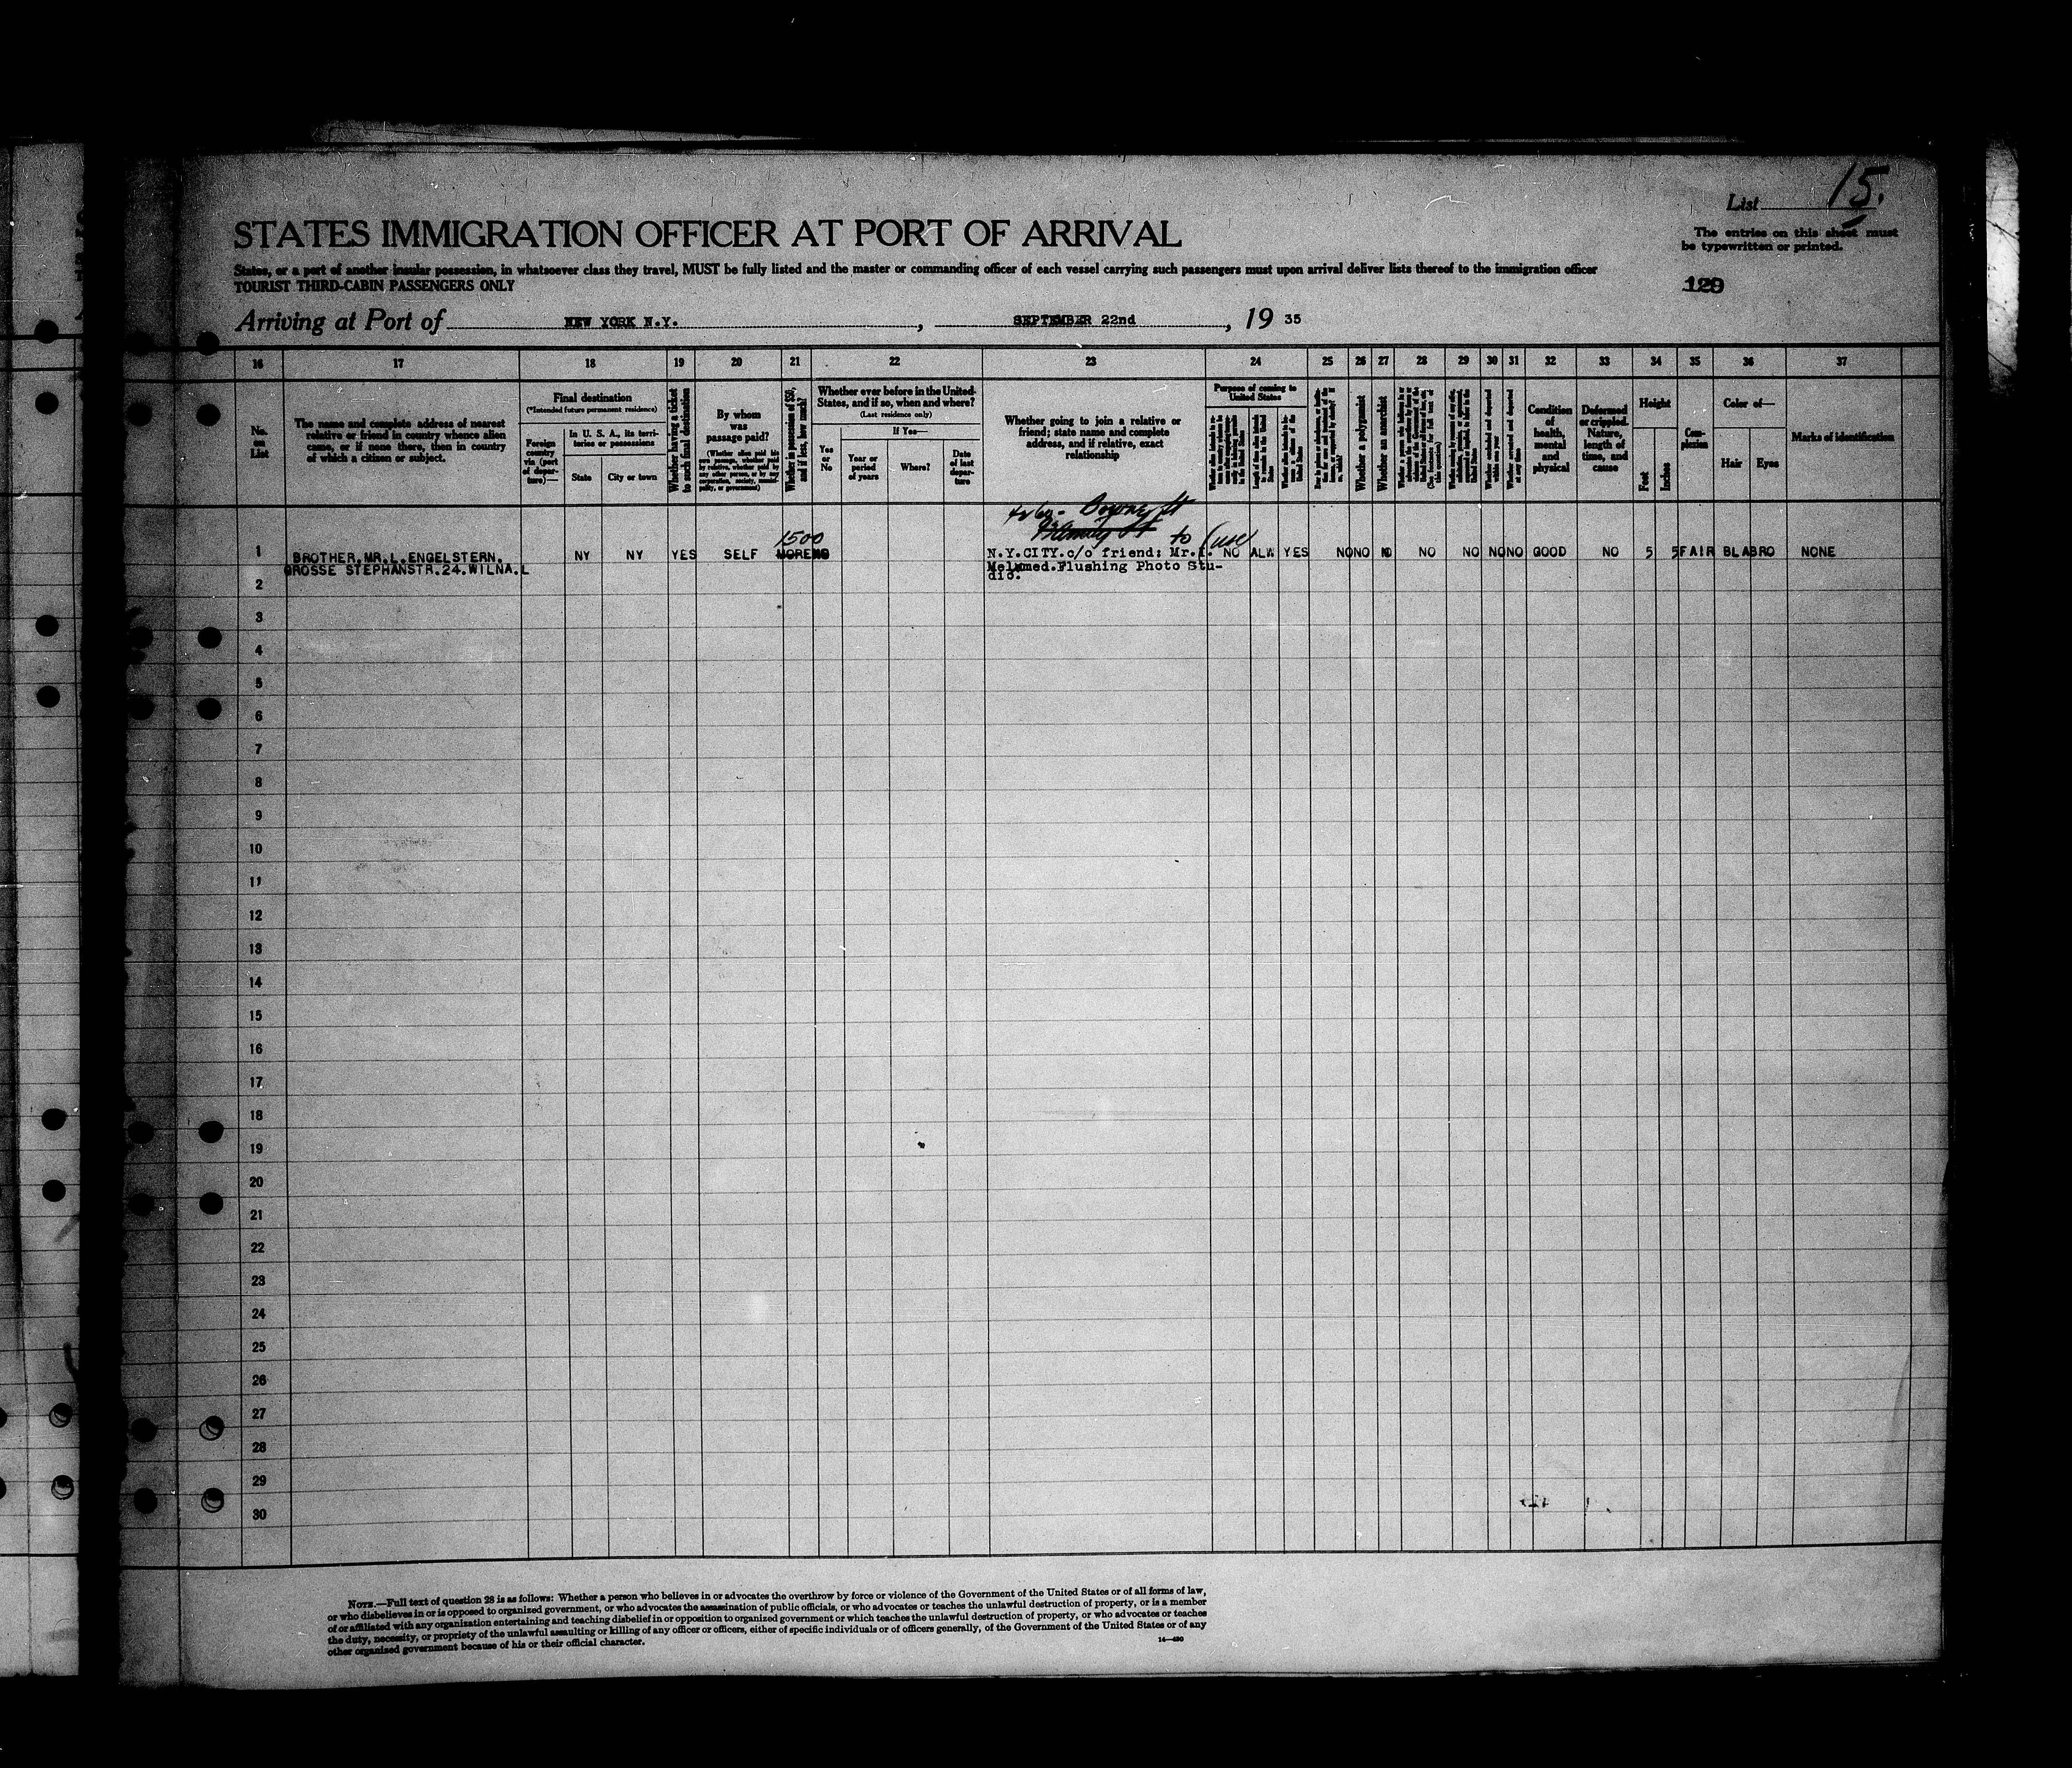 List 15.
The entries on this sheet must
be typewritten or printed.
STATES IMMIGRATION OFFICER AT PORT OF ARRIVAL
States, or a part of another insular possession, in whatsoever class they travel, MUST be fully listed and the master or commanding officer of each vessel carrying such passengers must upon arrival deliver lists thereof to the immigration officer
TOURIST THIRD-CABIN PASSENGERS ONLY
129
Arriving at Port of NEW YORK N.Y. , SEPTEMBER 22nd , 19 35
16 17 18 19 20 21 22 23 24 25 26 27 28 29 30 31 32 33 34 35 36 37
No. on List
The name and complete address of nearest
relative or friend in country whence alien
came, or if none there, then in country
of which a citizen or subject.
Final destination
(*Intended future permanent residence)
Foreign country via (port of departure)—
In U. S. A., its territories or possessions
State
City or town
Whether having a ticket to such final destination
By whom was passage paid?
(Whether alien paid his own passage, whether paid by relative, whether paid by any other person, or by any corporation, society, municipality, or government)
Whether in possession of $50, and if less, how much?
Whether ever before in the United States, and if so, when and where?
(Last residence only)
Yes or No
If Yes—
Year or period of years
Where?
Date of last departure
Whether going to join a relative or
friend; state name and complete
address, and if relative, exact
relationship
Purpose of coming to United States
Whether a polygamist
Whether an anarchist
Condition of health, mental and physical
Deformed or crippled. Nature, length of time, and cause
Height
Feet
Inches
Complexion
Color of—
Hair
Eyes
Marks of identification
Bowne St
1500
to (use)
1 BROTHER, MR. L. ENGELSTERN. NY NY YES SELF MORE N.Y.CITY.c/o friend: Mr. NO ALW YES NO NO NO NO NO NO NO GOOD NO 5 5 FAIR BLA BRO NONE
GROSSE STEPHANSTR.24.WILNA.L Melamed.Flushing Photo Stu-
dio.
2
3
4
5
6
7
8
9
10
11
12
13
14
15
16
17
18
19
20
21
22
23
24
25
26
27
28
29
30
NOTE.—Full text of question 28 is as follows: Whether a person who believes in or advocates the overthrow by force or violence of the Government of the United States or of all forms of law,
or who disbelieves in or is opposed to organized government, or who advocates the assassination of public officials, or who advocates or teaches the unlawful destruction of property, or is a member
of or affiliated with any organization entertaining and teaching disbelief in or opposition to organized government or which teaches the unlawful destruction of property, or who advocates or teaches
the duty, necessity, or propriety of the unlawful assaulting or killing of any officer or officers, either of specific individuals or of officers generally, of the Government of the United States or of any
other organized government because of his or their official character.
14—430